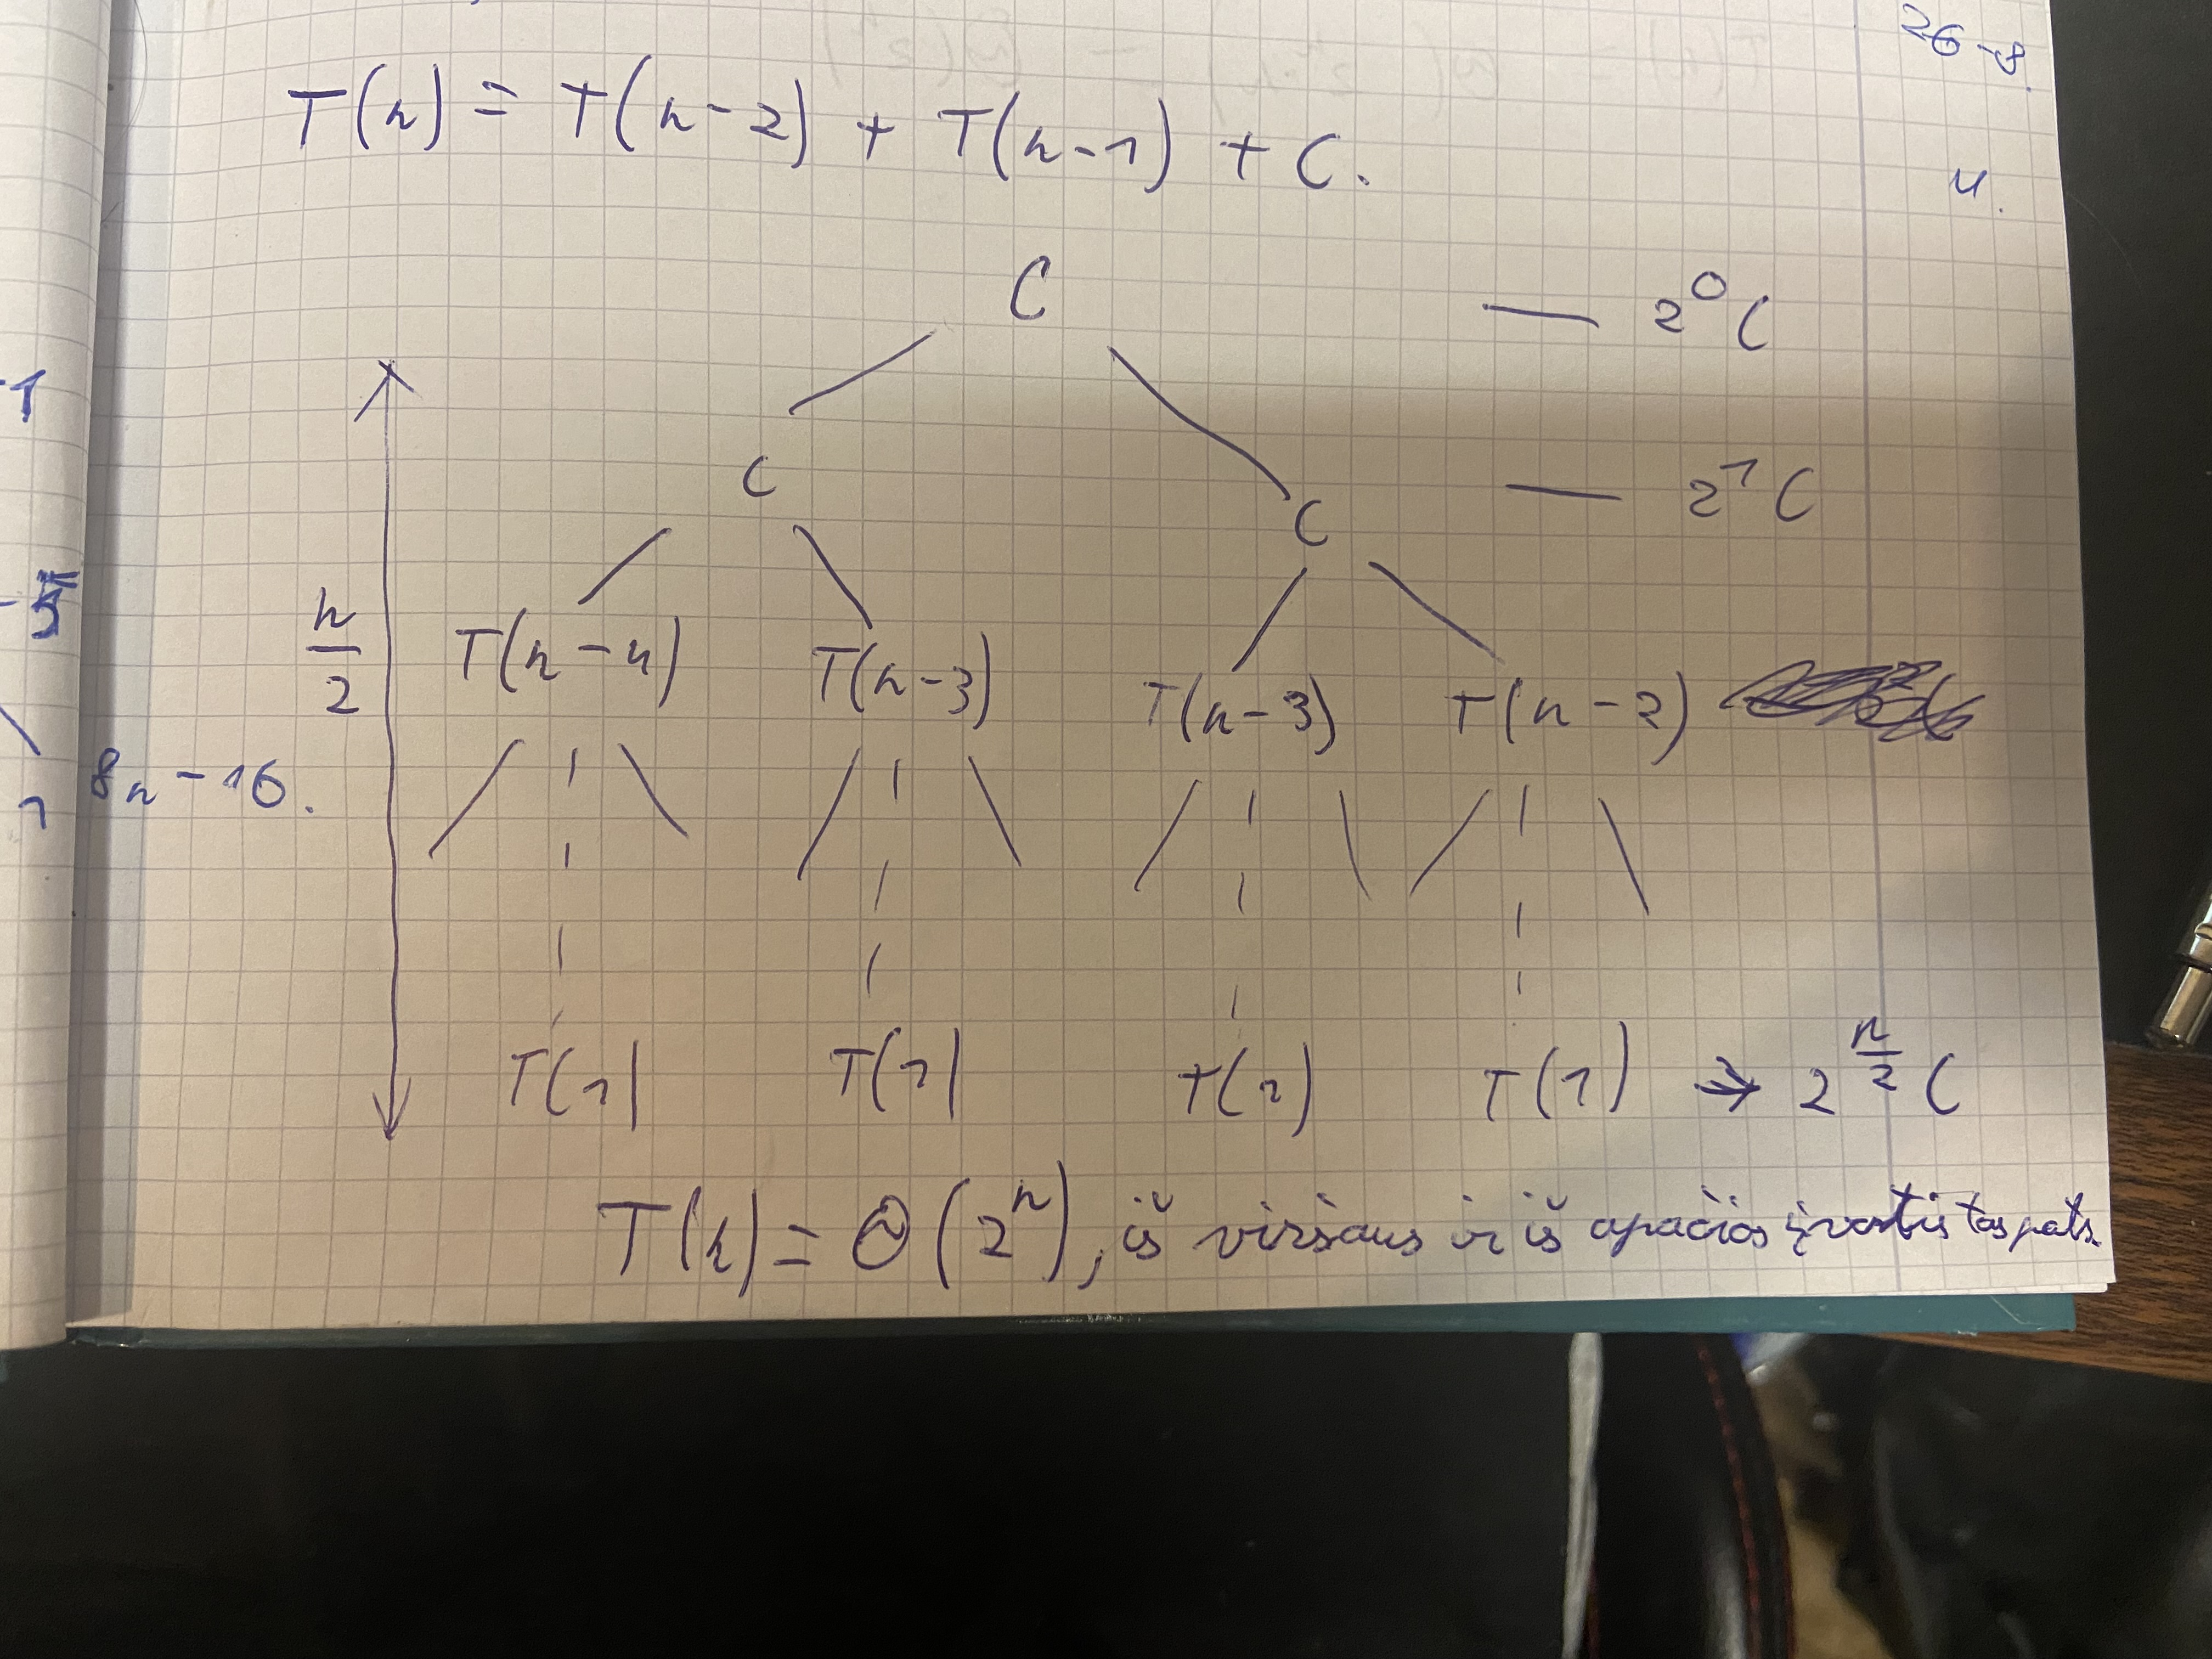 26-8.
T(n) = T(n-2) + T(n-1) + C.
4.
C — 2⁰C
-1
C C — 2¹C
n/2
T(n-4) T(n-3) T(n-3) T(n-2)
8n-16.
T(1) T(1) T(1) T(1) → 2^(n/2) C
T(n) = Θ(2ⁿ), iš viršaus ir iš apačios įvertis tas pats.